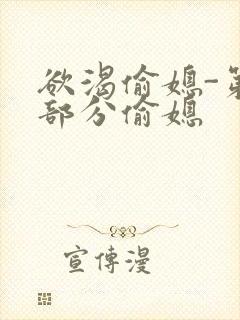 欲渴偷媳-第
部分偷媳
宣傳漫